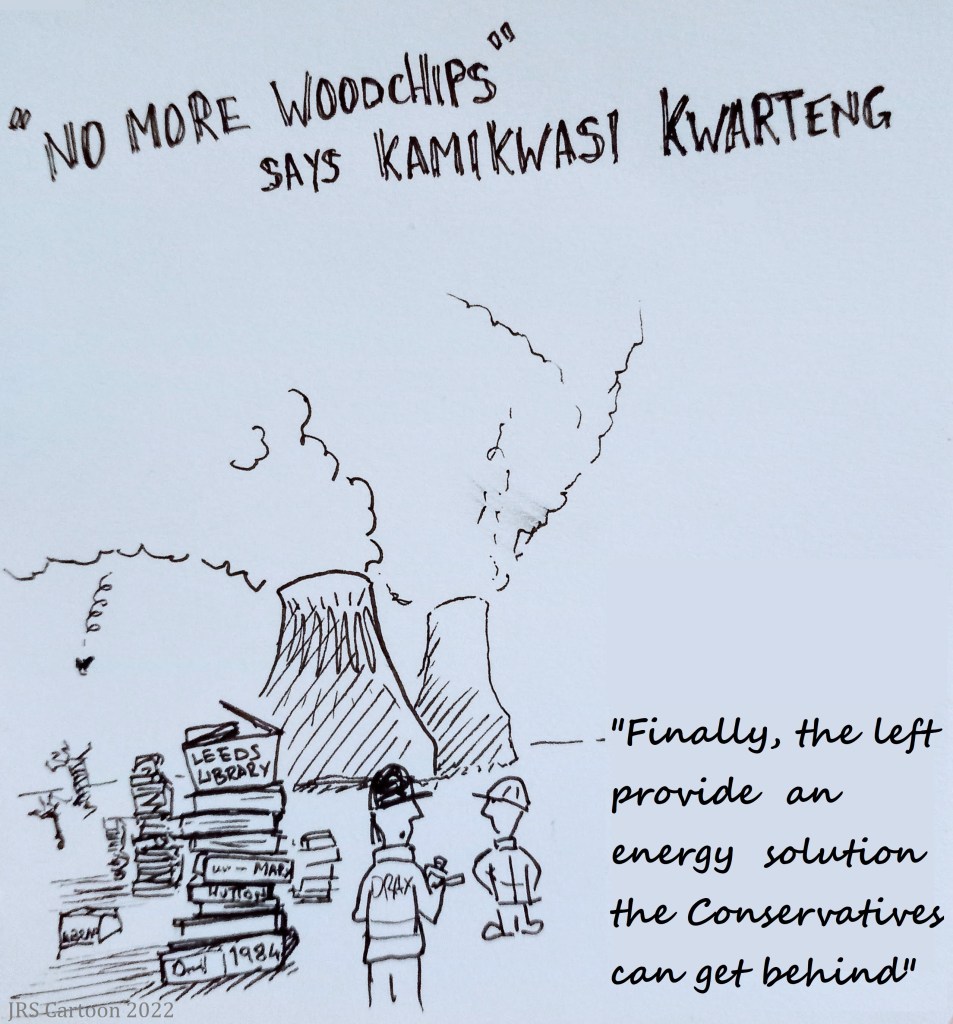 "NO MORE WOODCHIPS"
SAYS KAMIKWASI KWARTENG
LEEDS
LIBRARY
MARX
HUTTON
1984
DRAX
"Finally, the left
provide an
energy solution
the Conservatives
can get behind"
JRS Cartoon 2022